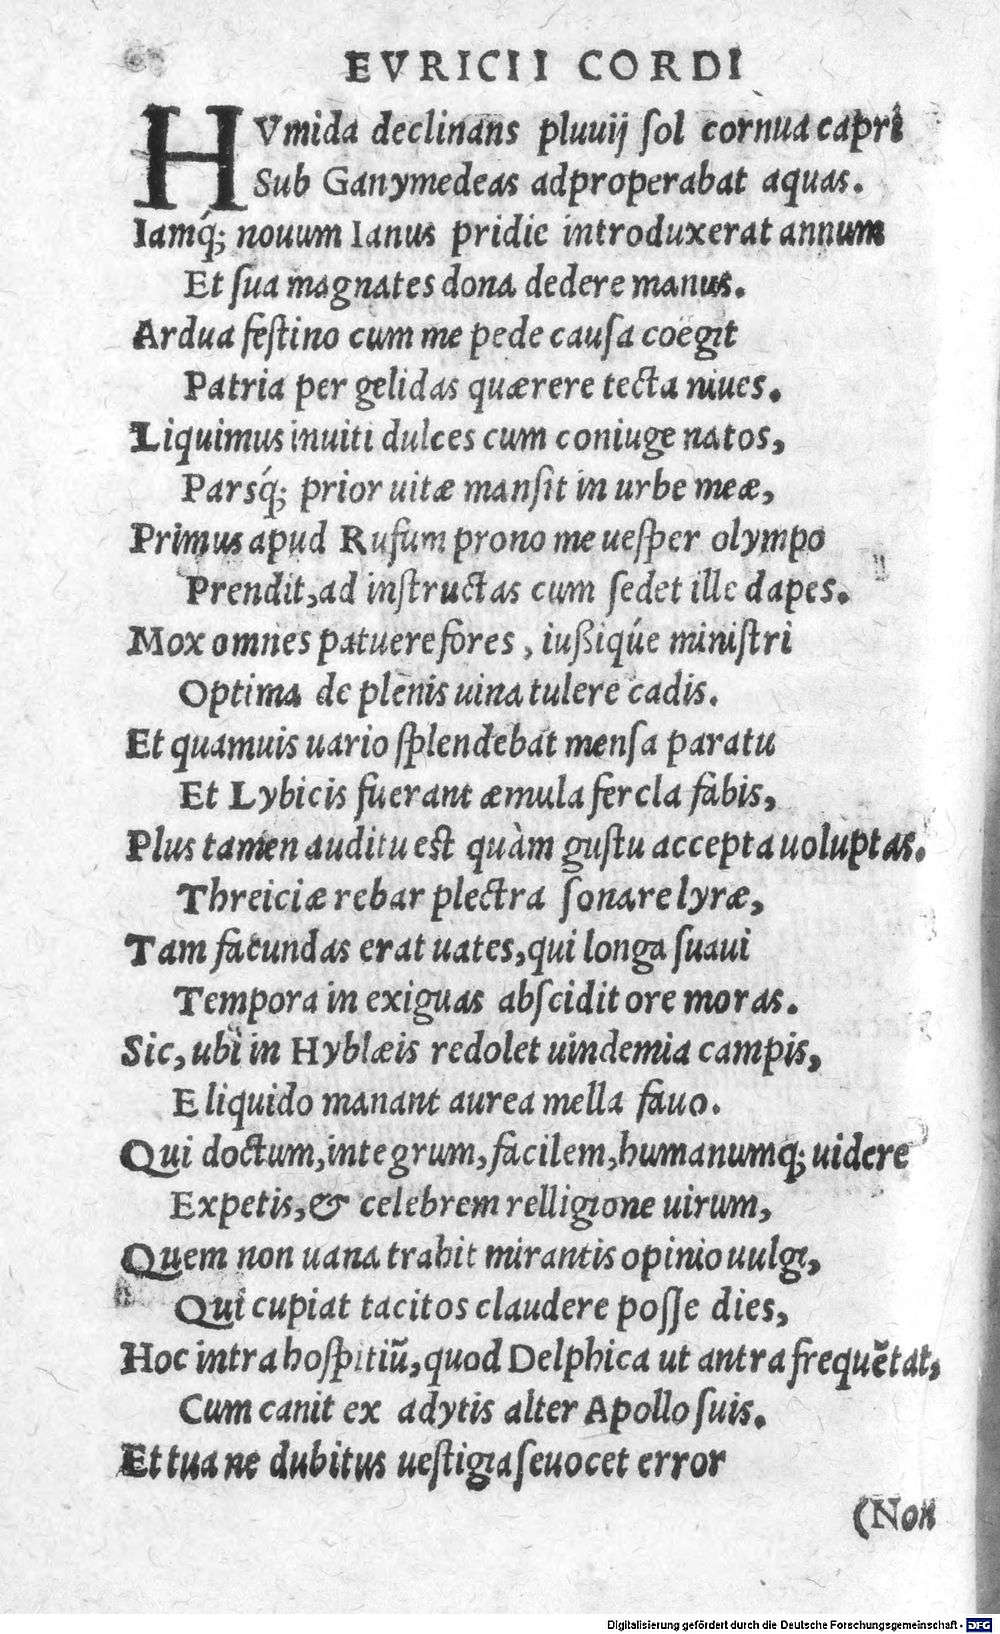 EVRICII CORDI
HVmida declinans pluuij ſol cornua capri
Sub Ganymedeas adproperabat aquas.
Iamq́; nouum Ianus pridie introduxerat annum
Et ſua magnates dona dedere manus.
Ardua feſtino cum me pede cauſa coëgit
Patria per gelidas quærere tecta niues.
Liquimus inuiti dulces cum coniuge natos,
Parsq́; prior uitæ manſit in urbe meæ,
Primus apud Rufum prono me ueſper olympo
Prendit, ad inſtructas cum ſedet ille dapes.
Mox omnes patuere fores, iußiq́ue miniſtri
Optima de plenis uina tulere cadis.
Et quamuis uario ſplendebat menſa paratu
Et Lybicis fuerant æmula fercla fabis,
Plus tamen auditu est quàm guſtu accepta uoluptas.
Threiciæ rebar plectra ſonare lyræ,
Tam facundas erat uates, qui longa ſuaui
Tempora in exiguas abſcidit ore moras.
Sic, ubi in Hyblæis redolet uindemia campis,
E liquido manant aurea mella fauo.
Qui doctum, integrum, facilem, humanumq; uidere
Expetis, & celebrem relligione uirum,
Quem non uana trahit mirantis opinio uulgi,
Qui cupiat tacitos claudere poſſe dies,
Hoc intra hoſpitiũ, quod Delphica ut antra frequẽtat,
Cum canit ex adytis alter Apollo ſuis.
Et tua ne dubitus ueſtigia ſeuocet error
(Non
Digitalisierung gefördert durch die Deutsche Forschungsgemeinschaft - DFG